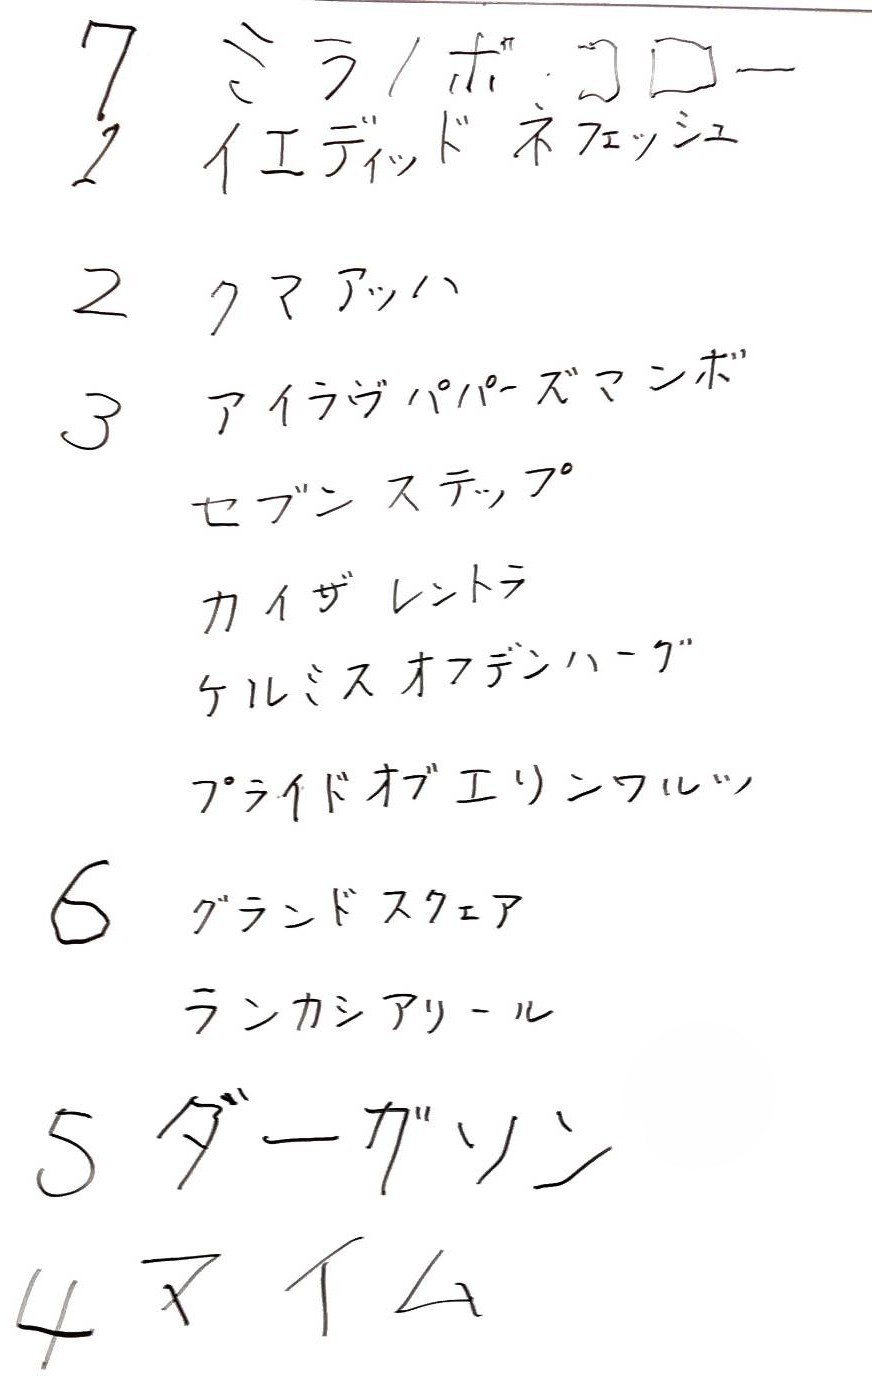 7 ミラノボ コロー
1 イエディッド ネフェッシュ
2 クマ アッハ
3 アイラヴ パパーズ マンボ
セブン ステップ
カイザ レントラ
ケルミス オフデンハーグ
プライド オブ エリン ワルツ
6 グランド スクェア
ランカシアリール
5 ダーガソン
4 マイム